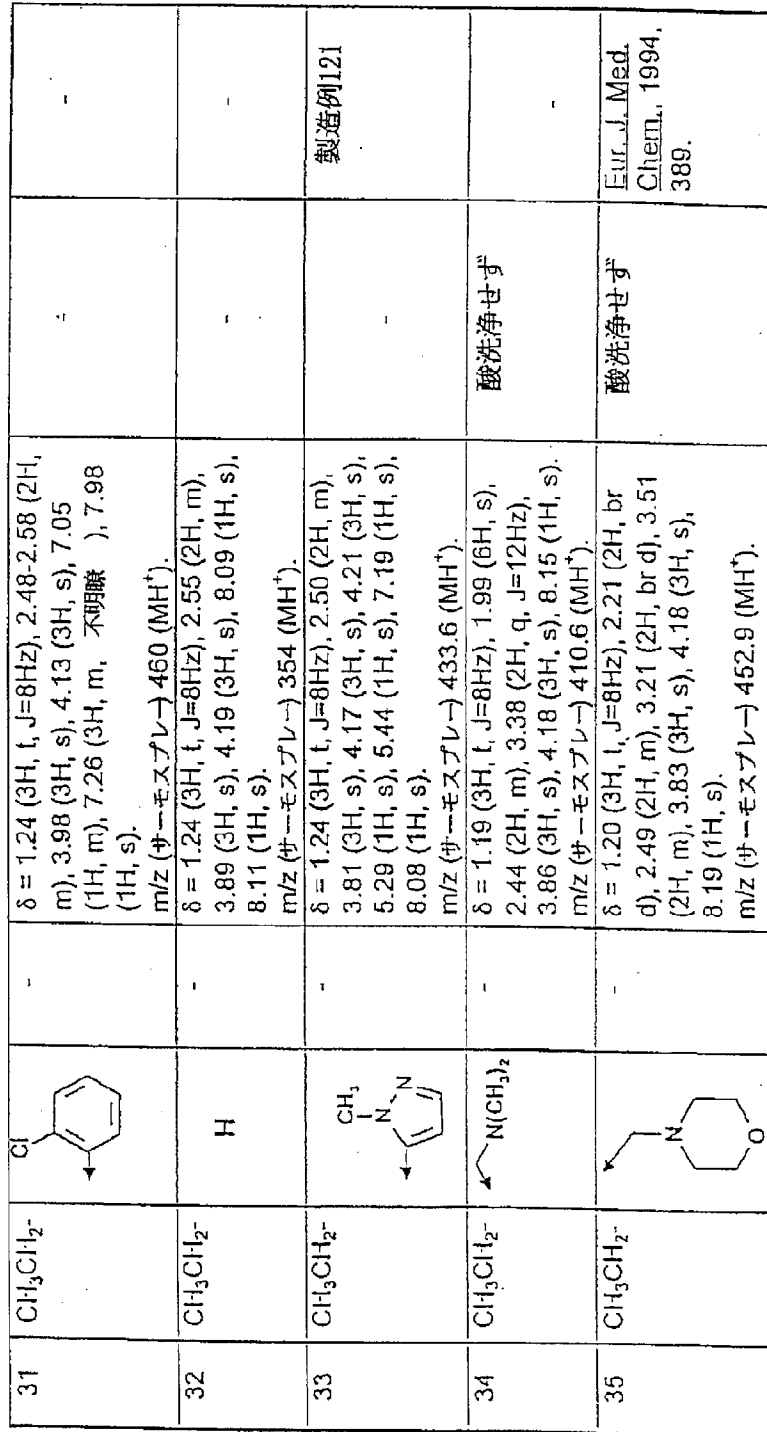 31
CH₃CH₂-
Cl
-
δ = 1.24 (3H, t, J=8Hz), 2.48-2.58 (2H,
m), 3.98 (3H, s), 4.13 (3H, s), 7.05
(1H, m), 7.26 (3H, m, 不明瞭 ), 7.98
(1H, s).
m/z (サーモスプレー) 460 (MH⁺).
-
-
32
CH₃CH₂-
H
-
δ = 1.24 (3H, t, J=8Hz), 2.55 (2H, m),
3.89 (3H, s), 4.19 (3H, s), 8.09 (1H, s),
8.11 (1H, s).
m/z (サーモスプレー) 354 (MH⁺).
-
-
33
CH₃CH₂-
CH₃
N
N
-
δ = 1.24 (3H, t, J=8Hz), 2.50 (2H, m),
3.81 (3H, s), 4.17 (3H, s), 4.21 (3H, s),
5.29 (1H, s), 5.44 (1H, s), 7.19 (1H, s),
8.08 (1H, s).
m/z (サーモスプレー) 433.6 (MH⁺).
-
製造例121
34
CH₃CH₂-
N(CH₃)₂
-
δ = 1.19 (3H, t, J=8Hz), 1.99 (6H, s),
2.44 (2H, m), 3.38 (2H, q, J=12Hz),
3.86 (3H, s), 4.18 (3H, s), 8.15 (1H, s).
m/z (サーモスプレー) 410.6 (MH⁺).
酸洗浄せず
-
35
CH₃CH₂-
N
O
-
δ = 1.20 (3H, t, J=8Hz), 2.21 (2H, br
d), 2.49 (2H, m), 3.21 (2H, br d), 3.51
(2H, m), 3.83 (3H, s), 4.18 (3H, s),
8.19 (1H, s).
m/z (サーモスプレー) 452.9 (MH⁺).
酸洗浄せず
Eur. J. Med.
Chem., 1994,
389.